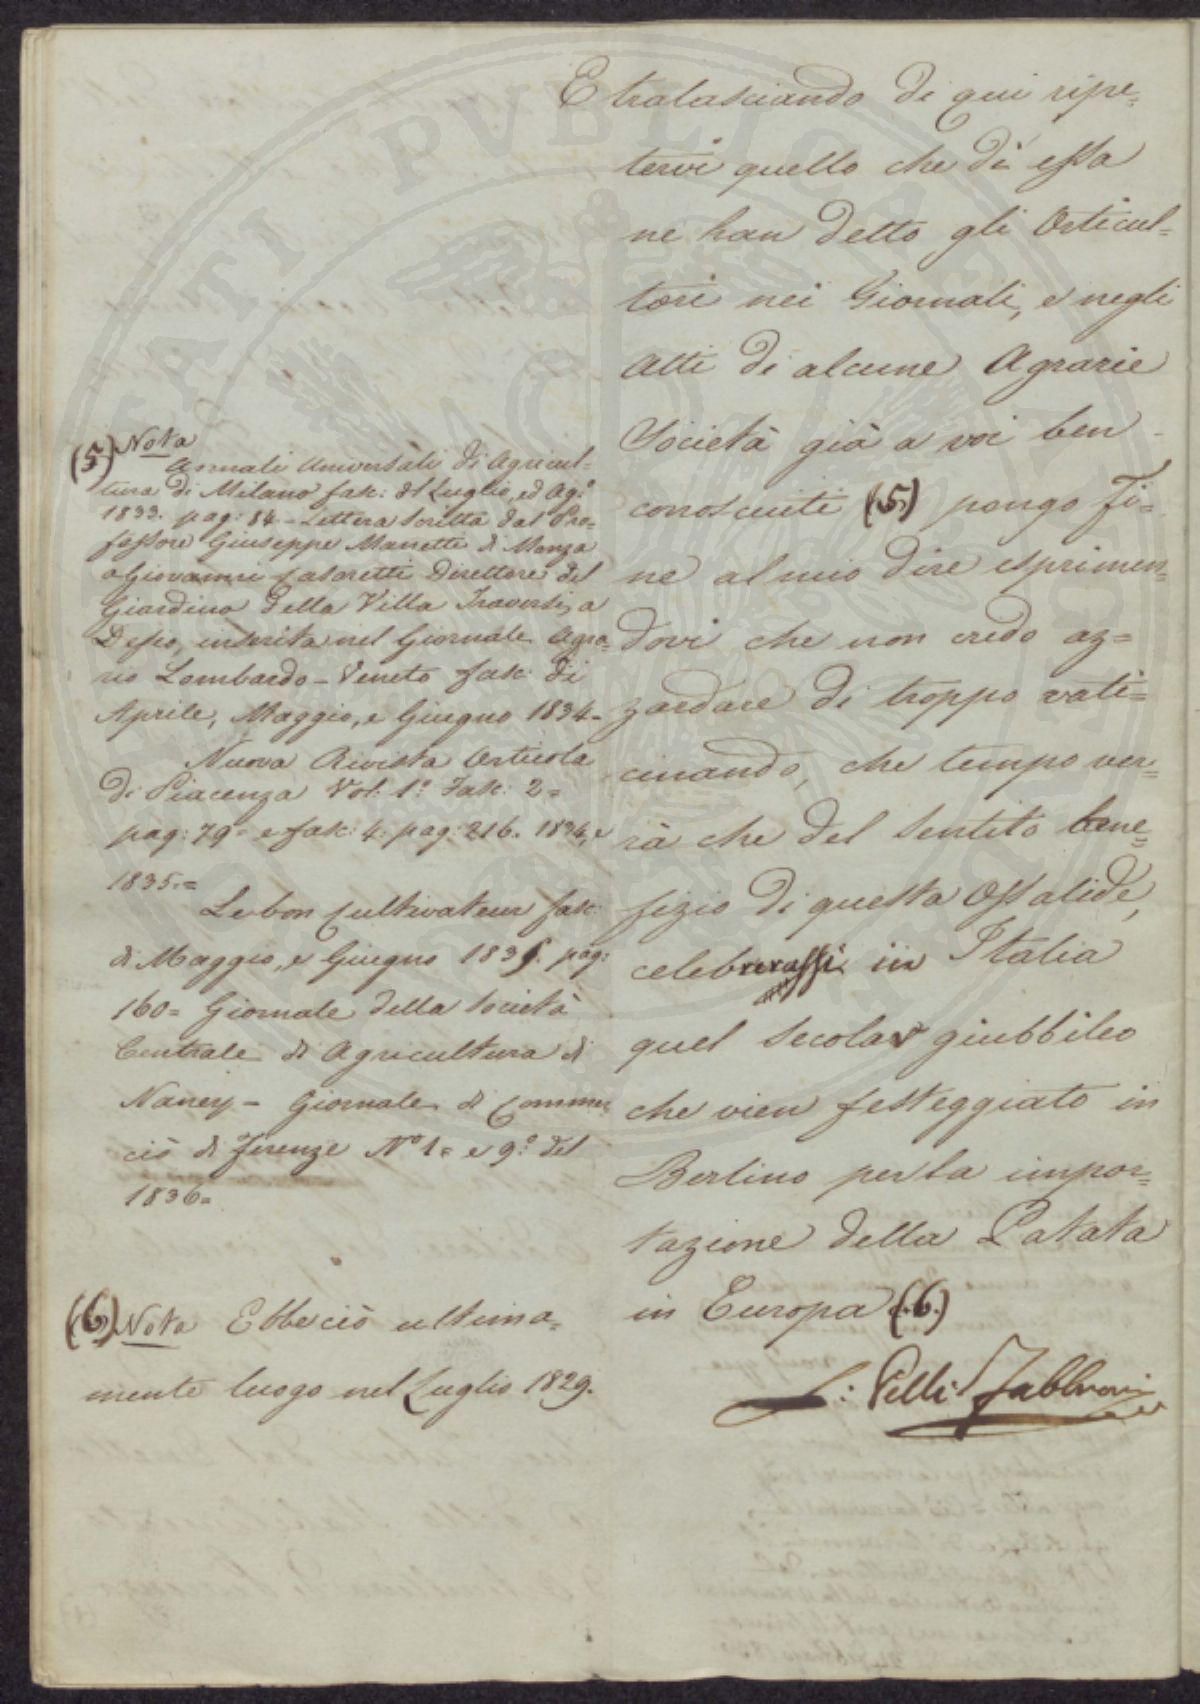 E tralasciando di qui ripe=
tervi quello che di essa
ne han detto gli Orticul=
tori nei Giornali, e negli
Atti di alcune Agrarie
Società già a voi ben
conosciuti (5) pongo fi=
ne al mio dire esprimen=
dovi che non credo az=
zardare di troppo vati=
cinando, che tempo ver=
rà che del sentito bene=
fizio di questa Ossalide,
celebrerassi in Italia
quel secolar giubbileo
che vien festeggiato in
Berlino per la impor=
tazione della Patata
in Europa (6.)
L: Pelli Fabbroni
(5) Nota
Annali universali di Agricul=
tura di Milano fasc: di Luglio, ed Ag.º
1833. pag: 84 - Lettera scritta dal Pro=
fessore Giuseppe Manetti di Monza
a Giovanni Casoretti Direttore del
Giardino della Villa Traversi, a
Desio, inserita nel Giornale Agra=
rio Lombardo-Veneto fasc: di
Aprile, Maggio, e Giugno 1834-
Nuova Rivista Orticola
di Piacenza Vol: 1º fasc: 2=
pag: 79= e fasc: 4: pag: 216. 1834, e
1835.=
Le bon Cultivateur fasc:
di Maggio, e Giugno 1835. pag:
160= Giornale della Società
Centrale di Agricultura di
Nancy - Giornale di Commer
cio di Firenze Nº 1= e 9.º del
1836=
(6) Nota Ebbe ciò ultima=
mente luogo nel Luglio 1829.